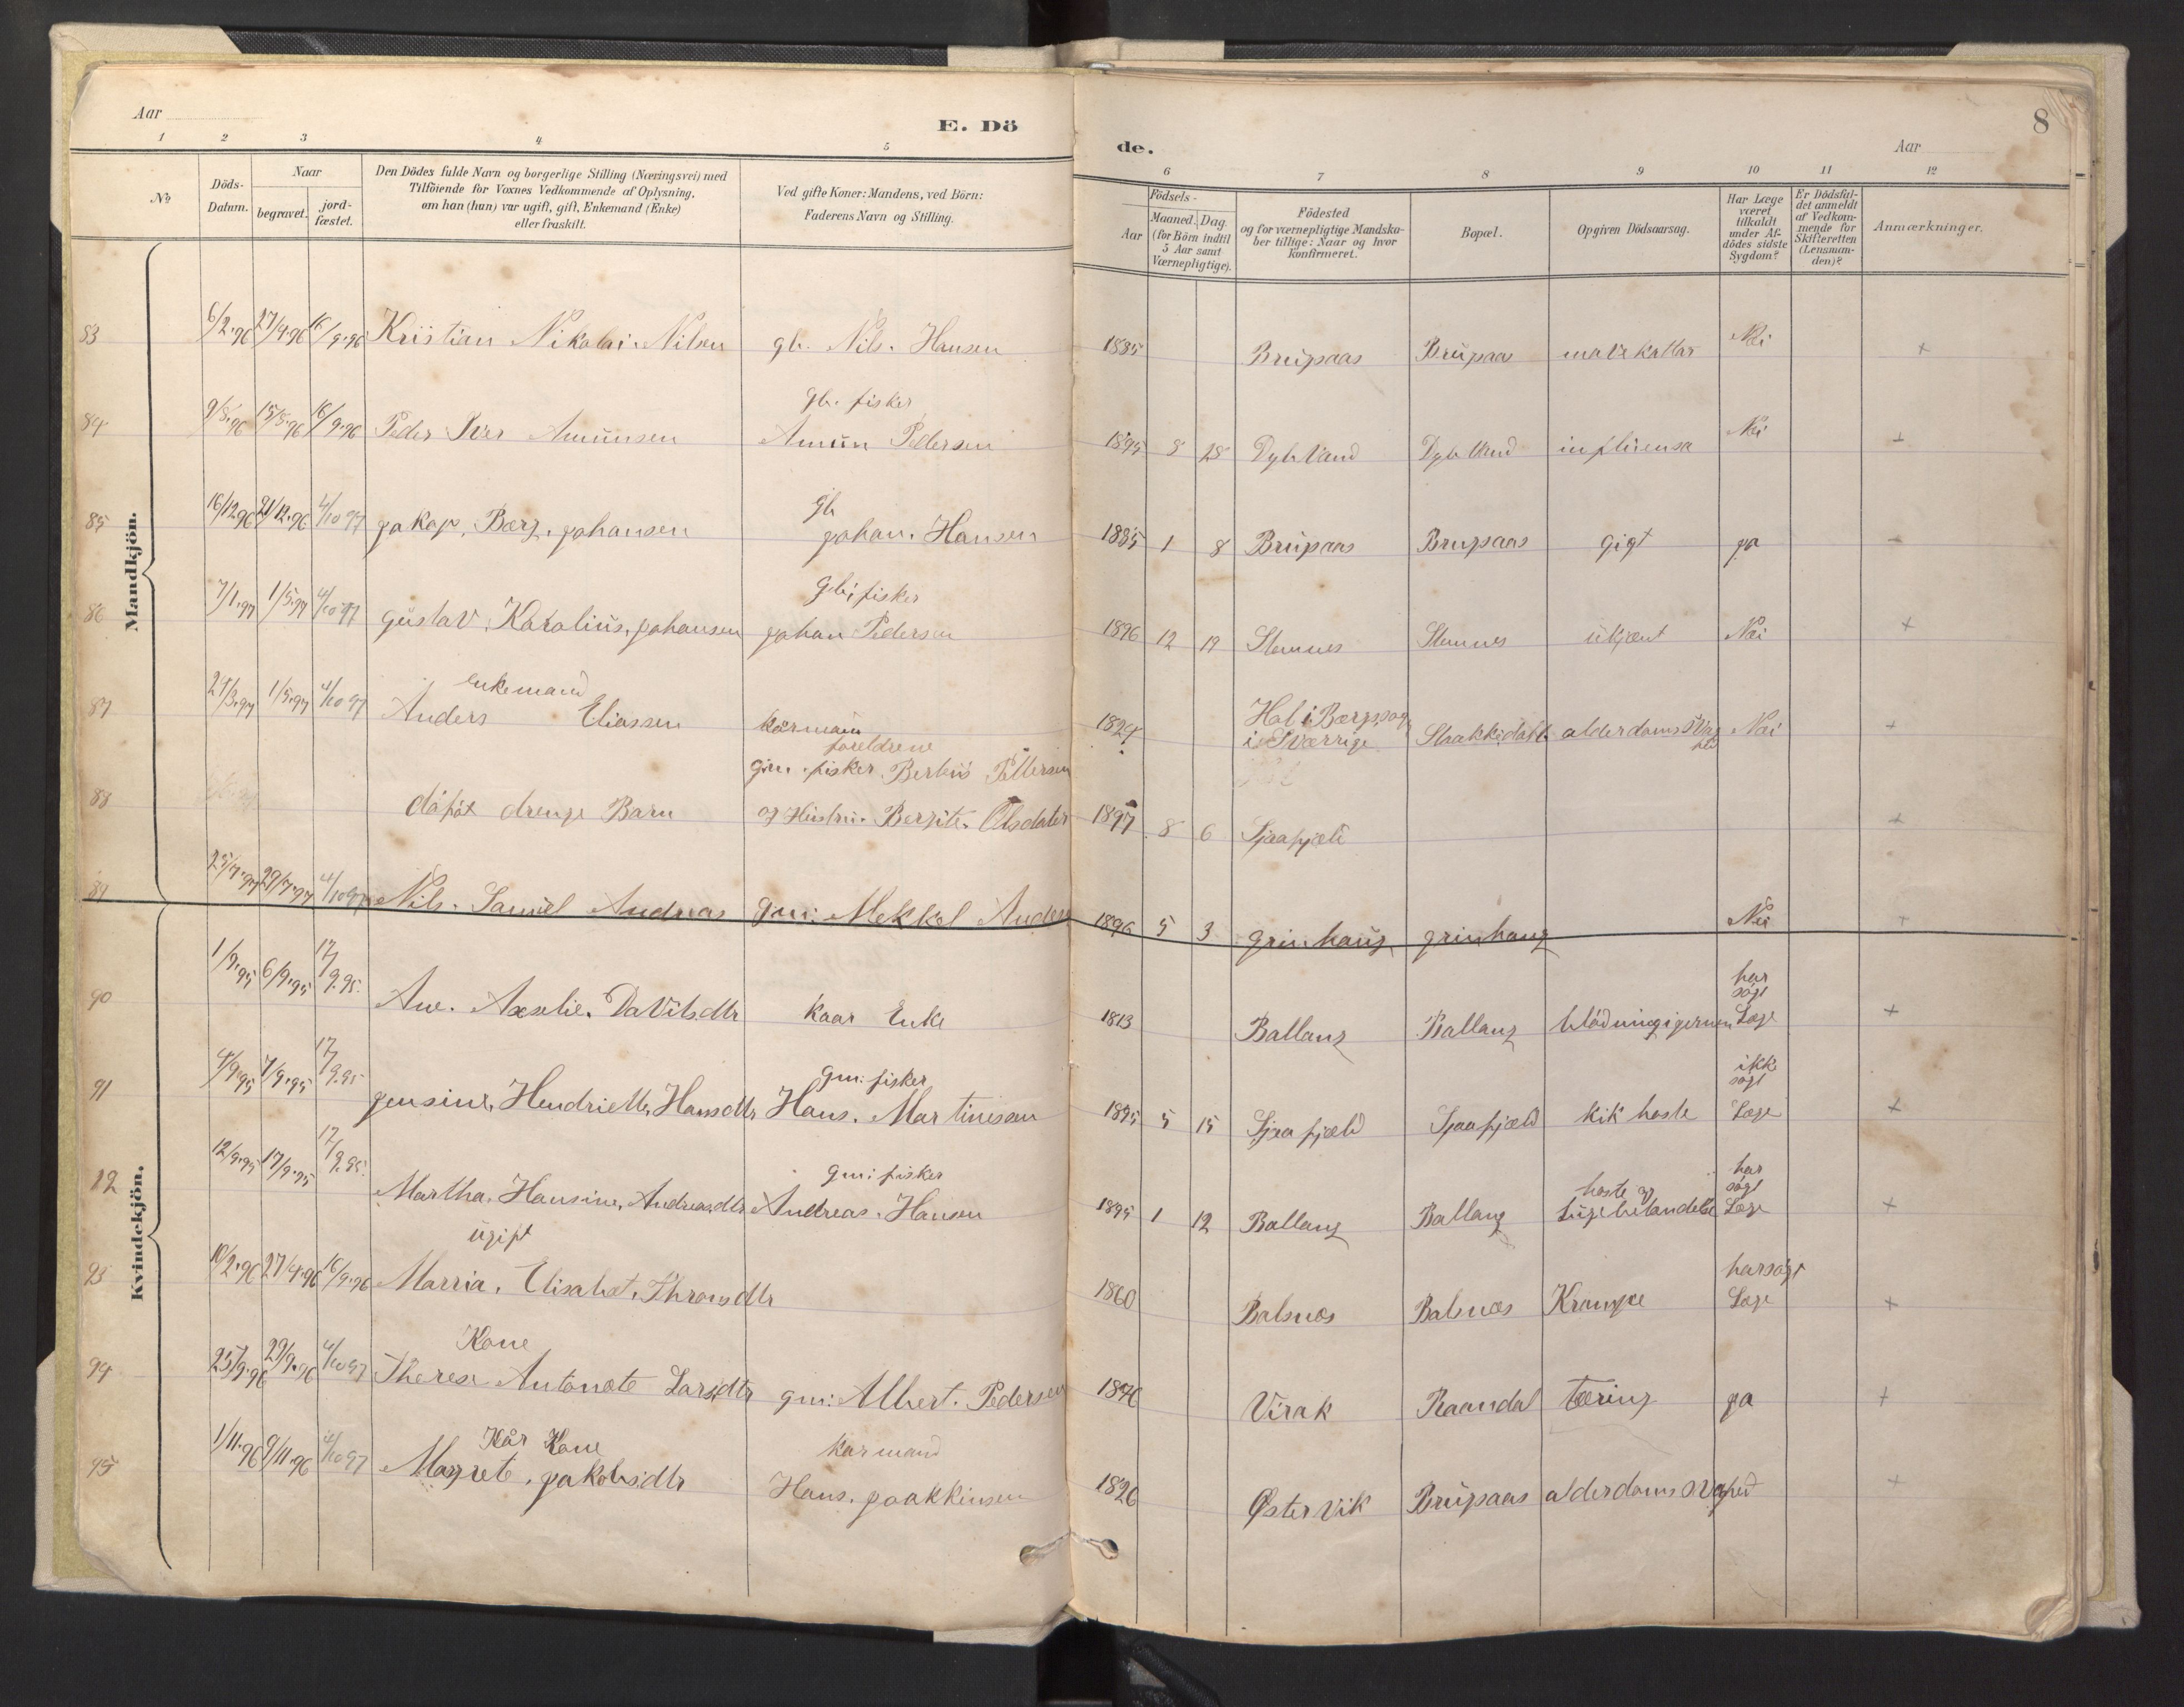 Aar
E. Dö
de.
Aar
8
1 2 3 4 5 6 7 8 9 10 11 12
No
Döds-Datum.
Naar
begravet.
jord-fæstet.
Den Dödes fulde Navn og borgerlige Stilling (Næringsvei) med
Tilföiende for Voxnes Vedkommende af Oplysning,
om han (hun) var ugift, gift, Enkemand (Enke)
eller fraskilt.
Ved gifte Koner: Mandens, ved Börn:
Faderens Navn og Stilling.
Födsels-
Aar
Maaned. Dag.
(for Börn indtil
5 Aar samt
Værnepligtige).
Födested
og for værnepligtige Mandska-
ber tillige: Naar og hvor
konfirmeret.
Bopæl.
Opgiven Dödsaarsag.
Har Læge
været
tilkaldt
under Af-
dödes sidste
Sygdom?
Er Dödsfal-
det anmeldt
af Vedkom-
mende for
Skifteretten
(Lensman-
den)?
Anmærkninger.
Mandkjön.
83 6/2.96 27/4.96 16/9.96 Kristian Nikolai Nilsen gb. Nils. Hansen 1885 Brupaas Brupaas mavekattar Nei +
gb. fisker
84 9/8.96 15/8.96 16/9.96 Peder Iver Amunsen Amun Pedersen 1895 8 28 Dybvand Dybvand influensa Nei +
gb
85 16/12.96 21/12.96 4/10 97 jakop. Berg. johansen johan. Hansen 1885 1 8 Brupaas Brupaas gigt ja
gb; fisker
86 7/1.97 1/5.97 4/10 97 gustav. Karolius. johansen johan Pedersen 1896 12 19 Stamnes Stamnes ukjent Nei +
enkemand
87 1/5.97 4/10 97 Anders Eliassen kormain 1829 Hol i Bergsog
i Sverrige Alderdomsvag
hed Nei +
foreldrene
gm. fisker Berteus Pettersen
88 döföt drenge Barn og Hustru. Bergite. Olsdater 1897 8 6 Sjaafjeld +
89 25/7.97 29/7.97 4/10 97 Nils. Samuel Andreas gm: Mekkel Anders 1896 5 3 grinhaug grinhaug Nei +
Kvindekjön.
90 1/9.95 6/9.95 17/9.95. Ane. Axselie. Davidsdtr Kaar Enke 1813 Ballang Ballang blödning i gernen har
sögt
Læge +
gm: fisker
91 4/9.95 7/9.95 17/9.95 jensine, Hendriette, Hansdtr Hans. Martinessen 1895 5 15 Sjaafjeld Sjaafjeld kik hoste ikke
sögt
Læge +
gm: fisker
92 12/9.95 17/9.95 17/9.95. Martha. Hansine, Andreasdtr Andreas. Hansen 1895 1 12 Ballang Ballang hoste og
Lugebetandelse har
sögt
Læge +
ugift
93 10/2.96 27/4.96 16/9.96 Marria. Elisabet. Thronsdtr 1860 Balsnes Balsnes Krampe har sögt
Læge +
Kone
94 25/9.96 29/9.96 4/10 97 Therese Antonete Larsdtr gm: Albert. Pedersen 1870 Virak Raandal tæring ja +
Kår Kone karmand
95 1/11.96 9/11.96 4/10 97 Magrete. jakobsdtr Hans. joakkimsen 1826 Østervik Brupaas alderdomsvaghed +